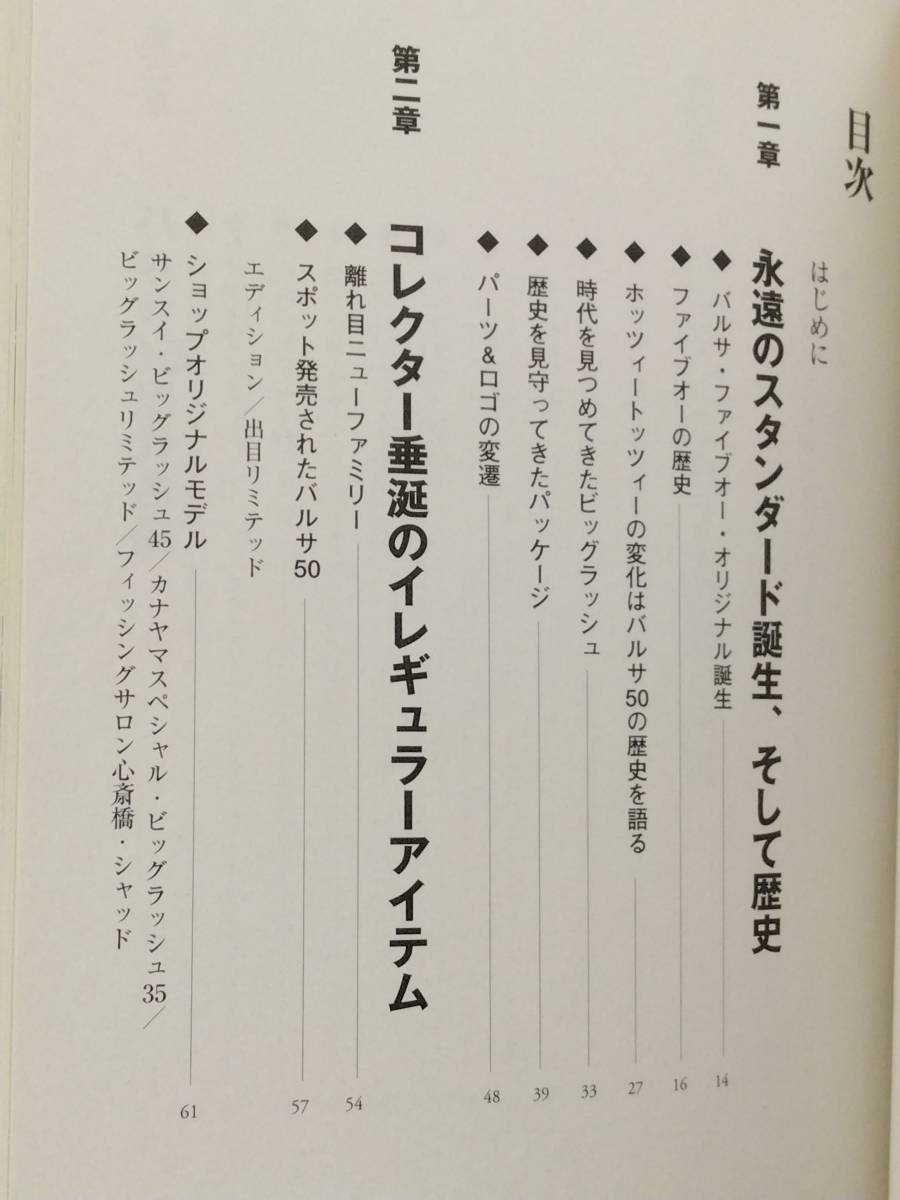 目次
はじめに
第一章 永遠のスタンダード誕生、そして歴史
◆ バルサ・ファイブオー・オリジナル誕生 14
◆ ファイブオーの歴史 16
◆ ホッツィートッツィーの変化はバルサ50の歴史を語る 27
◆ 時代を見つめてきたビッグラッシュ 33
◆ 歴史を見守ってきたパッケージ 39
◆ パーツ&ロゴの変遷 48
第二章 コレクター垂涎のイレギュラーアイテム
◆ 離れ目ニューファミリー 54
◆ スポット発売されたバルサ50 57
エディション/出目リミテッド
◆ ショップオリジナルモデル 61
サンスイ・ビッグラッシュ45/カナヤマスペシャル・ビッグラッシュ35/
ビッグラッシュリミテッド/フィッシングサロン心斎橋・シャッド